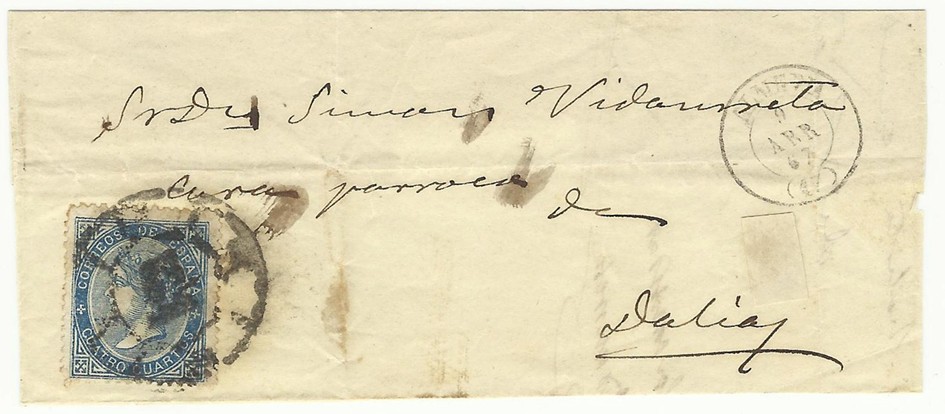 Sr Dn Simon Vidaurreta
ALMERIA
9
ABR
67
cura parroco
de
Dalias
CORREOS DE ESPAÑA
CUATRO CUARTOS